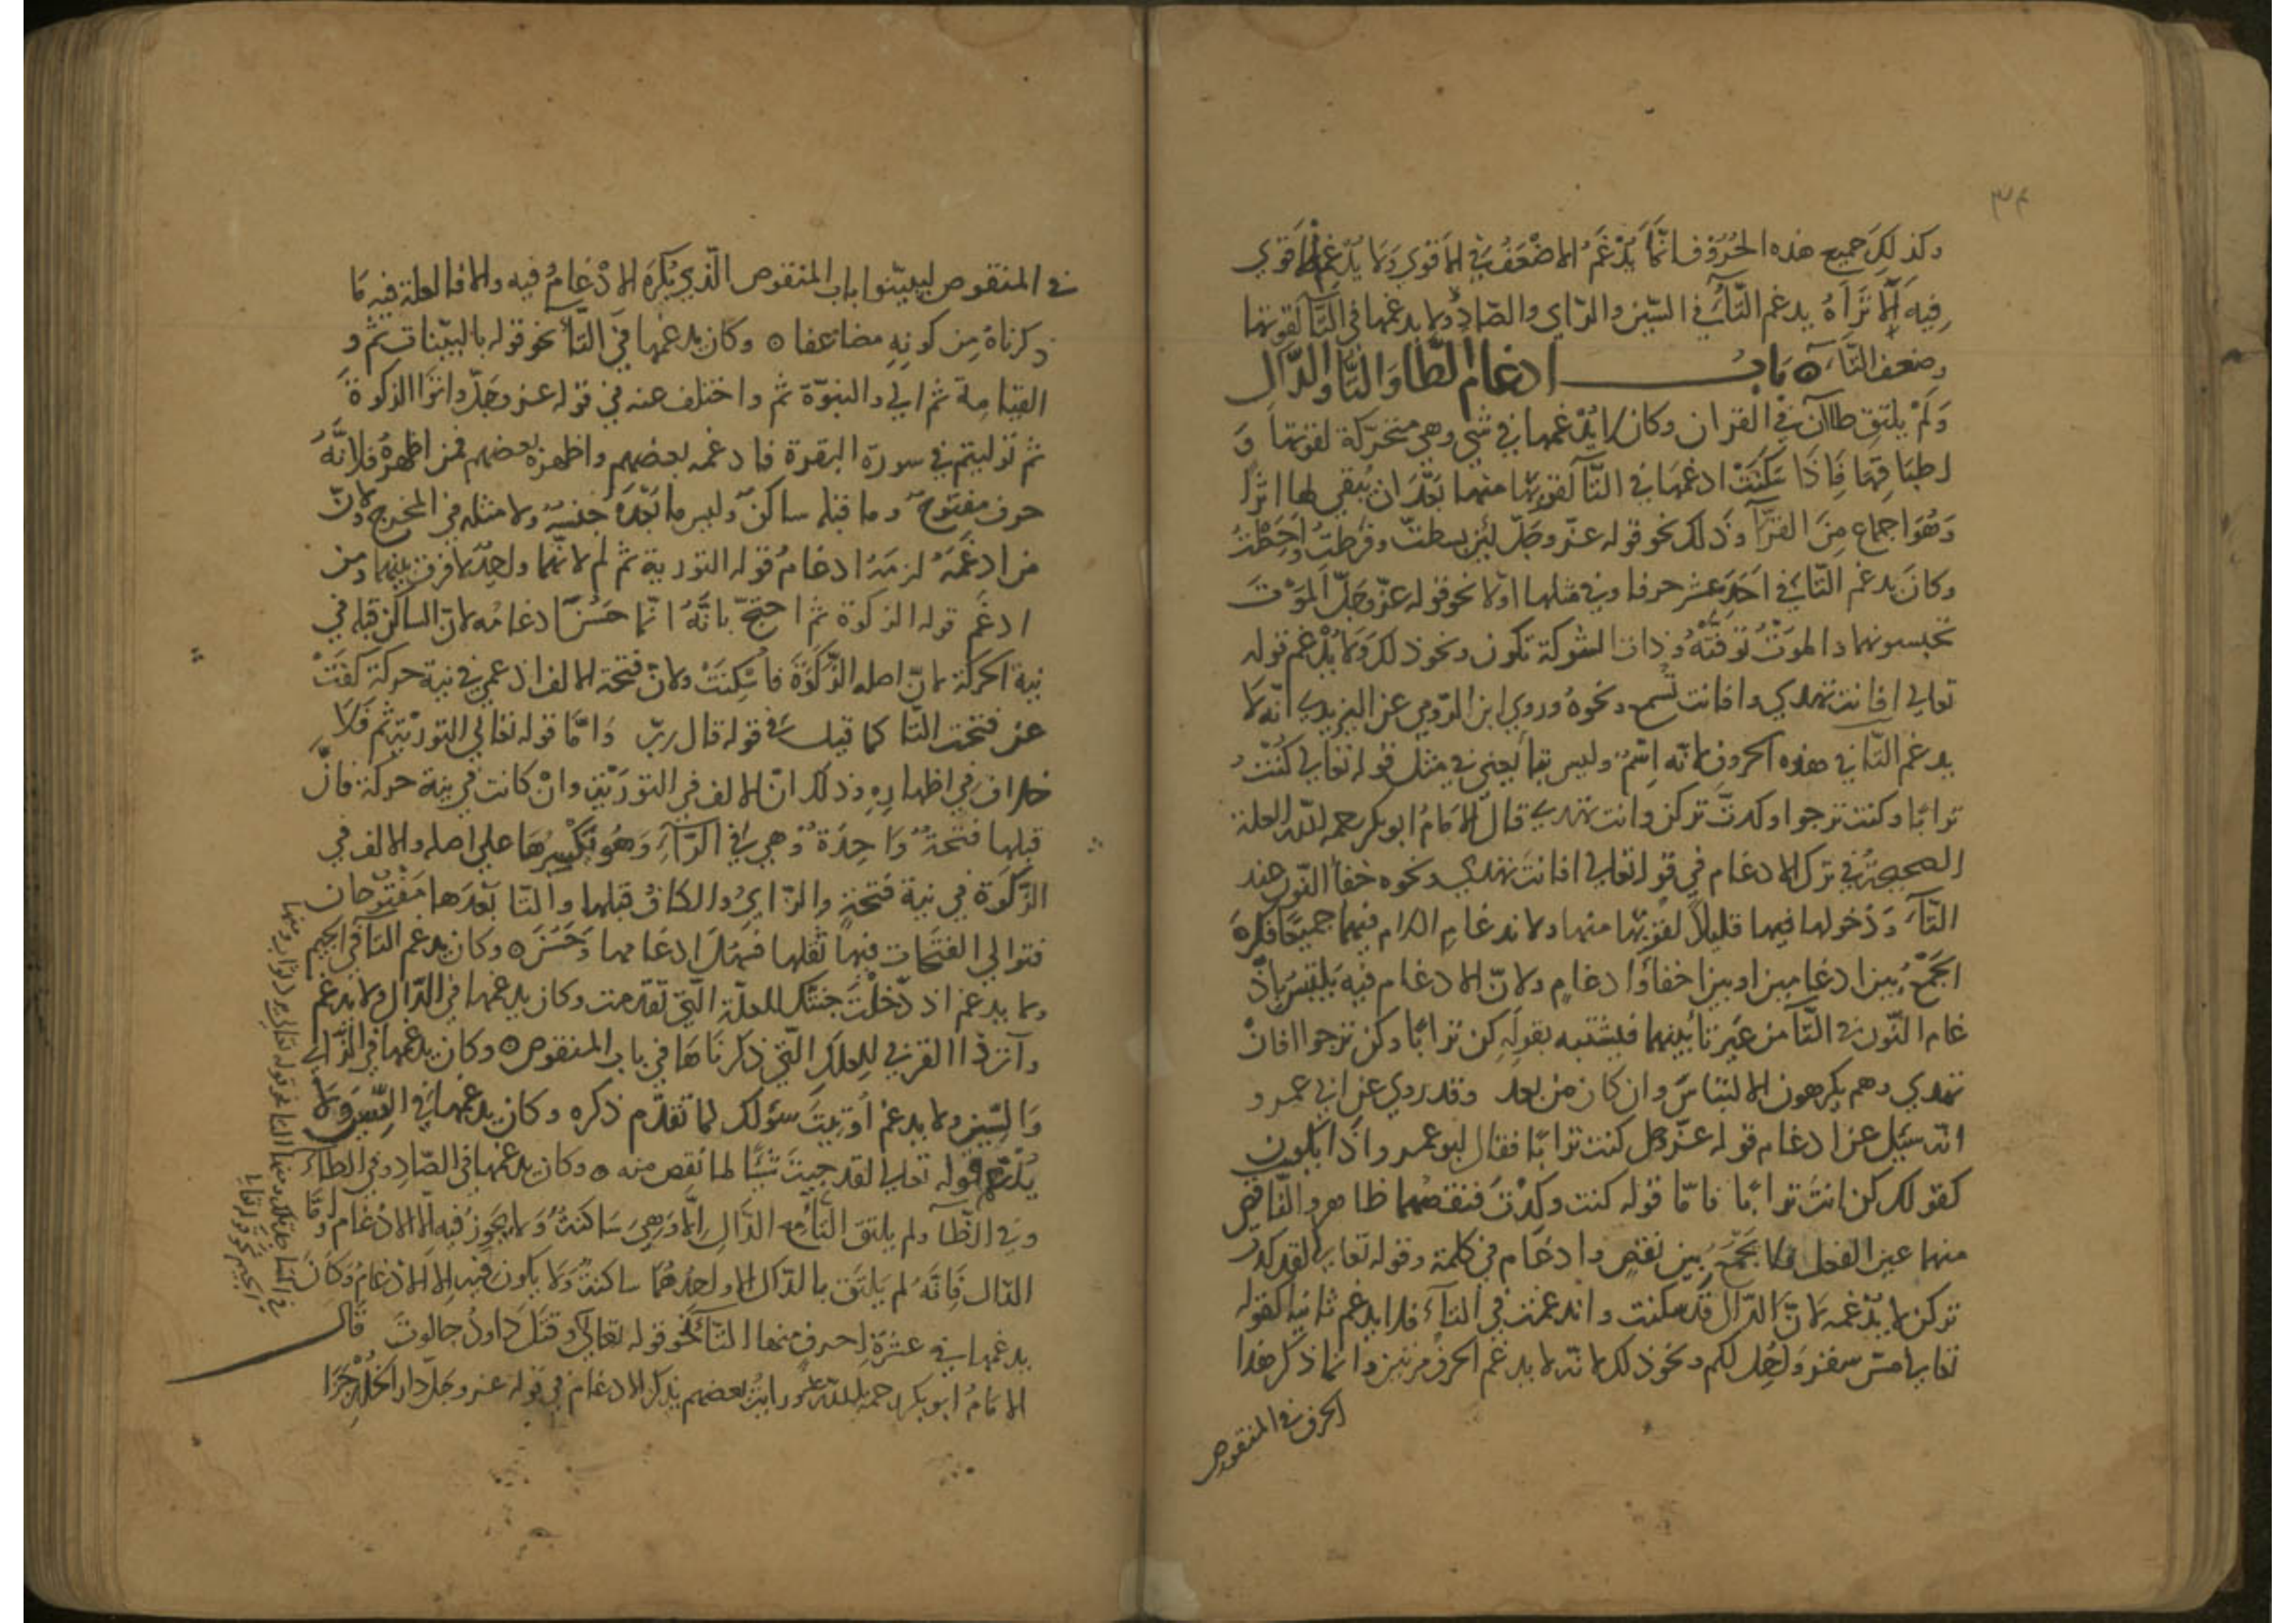 ٣٤
وكذلك جميع هذه الحروف فانما يُدْغَمُ الاضْعَفُ في الاقوي ولا يُدغم الاقوي
فيه الا تَرَاهُ يدغم التآء في السّين والزاي والصّاد ولا يدغمها في التآ لقوتها
وضعف التآء ٥ باب ادغام الطا والتا والدال
وَلَمْ يلتقِ طاآن في القران وكان لا يُدْغمها في شي وهي متحركة لقوتها وَ
اطباقها فاذا سَكَنَتْ ادغمها في التآ لقربها منها بَعْدَ ان يُبقي لها اثرا
وَهُوَ اجماع مِنَ القرّآ وذلك نحو قوله عزّ وجلّ لئن بسطتّ وفرّطتُ وأَحَطْتُ
وكانَ يدغم التّا في اَحَد عشر حرفا وفي مثلها اولا نحو قوله عزّ وجلّ الموْت
تحبسونهما والموتُ توفّتْهُ وذات الشوكة تكون ونحو ذلك ولا يُدْغم قوله
تعالي افانت تهدي وافانت تسمع ونحوهُ وروي ابن الرّومي عن اليزيدي انّه لا
يدغم التّا في هذه الحروف لانّه اسْمٌ وليس بتا يعني في مثل قوله تعالي كُنْتُ
ترابًا وكنت ترجوا وكدتّ تركن وانت تهدي قال الامامُ ابو بكر رحمه الله العلة
الصحيحةُ في ترك الادغام في قوله تعالي افانت تهدي ونحوه خفآ النّون عند
التآء وَدُخولها فيها قليلًا لقربها منها ولاندغام اللام فيهما جميعًا فكره
الجَمْعُ بين ادغامين او بين اخفآءٍ وادغامٍ ولانّ الادغام فيه يلتبسُ باد
غام النّون في التّآ من غير تا بينهما فيشتبه بقوله كن ترابًا وكن ترجوا افانْ
تهدي وهم يكرهون الالتباسَ وان كان من بعد وقد روي عن ابي عمرو
انّه سُئِل عن ادغام قوله عزّ وجل كنت ترابًا فقال ابو عمرو اذًا يكون
كقولك كن انت ترابًا فامّا قوله كنت وكدْتَ فنقصهما ظاهر والنّاقص
منهما عين الفعل فلا يَجْمَعُ بين نقصٍ وادغام في كلمة وقوله تعالي لقد كدتّ
تركن لا يدْغمه لانّ الدّال قد سكنت واندغمت في التآء فلا يدغم ثانيه كقوله
تعالي مسّ سقر وَاُحِلّ لكم ونحو ذلك لانّه لا يدغم الحرف مرّتين وانما ذكر هذا
الحرف في المنقوص
في المنقوص ليبيّنوا باب المنقوص الّذي يُكْرَهُ الادْغامُ فيه والا فالعلة فيه مَا
ذكرناهُ مِن كونِهِ مضاعفا ٥ وكان يدغمها في الثآء نحو قوله بالبيّنات ثم و
القيامة ثم ابي والنبوّة ثم واختلف عنه في قوله عز وجلّ واتوا الزكوة
ثم توليتم في سورة البقرة فادغمه بعضهم واظهره بعضهم فمن اظهرهُ فلانّهُ
حرف مفتوحٌ وما قبله ساكنٌ وليس ما بَعْدَهُ جنسهُ ولا مثله في المخرج ولانّ
من ادغَمَهُ لزمَهُ ادغامُ قوله التورية ثم لم لانّهما واحِدٌ لا فرق بينهما ومن
ادغَمَ قوله الزكوة ثم احتجّ بانّهُ انما حَسُنَ ادغامُه لانّ الساكن قبله في
نية الحركة لانّ اصله الزَّكَوَةَ فاُسْكِنَتْ ولانّ فتحة الالف اذ عمي في نية حركة كَفَتْ
عن فتحت التّا كما قيل في قوله قال ربّ وَامَّا قوله تعالي التوريةَ ثم فَلا
خلاف في اظهاره وذلك انّ الالف في التورَيَة وانْ كانت في نية حركة فانّ
قبلها فتحة وَاحِدَة وهي في الرّآءِ وَهُو يَكْسِرُهَا علي اصله والالف في
الزّكوة في نية فَتحَة والزّايُ والكافُ قبلها والتا بَعْدَهَا مَفْتُوحان
فتوالي الفتَحات فيها ثقلها فسَهُل ادغامها وَحَسُن ٥ وكان يدغم التآ في الجيم
ولا يدغم اذ دّخلتَ جنتك للعلّة الّتي تقدمت وكان يدغمها في الذال ولا يدغم
وآت ذا القربي للعلل الّتي ذكرناهَا في باب المنقوص ٥ وكان يدغمها في الزاي
وَالسّين ولا يدغم اُوتيتَ سؤلك لما تقدّم ذكره وكان يدغمها في الشين ولا
يُدْغم قوله تعالي لقد جيتَ شَيًا لما نقص منه ٥ وكان يدغمها في الصّاد وفي الطآء
وفي الظّآ ولم يلتق التآء مع الدّال الّا وَهِيَ سَاكنةٌ وَلا يجوز فيه الّا الادغام وَامّا
الدّال فانّهُ لم يلتَقِ بالدّال الا واحدُهُمَا ساكنةٌ وَلا يكون فيه الا الادْغامُ وكانَ
يدغمها في عشرَة احرفٍ منها التآء نحو قوله تعالي وقتل داودُ جالوتَ قال
الامامُ ابو بكر رحمه الله ورايتُ بعضهم يذكر الادغامَ في قوله عز وجلّ دار الخلد جَزَا